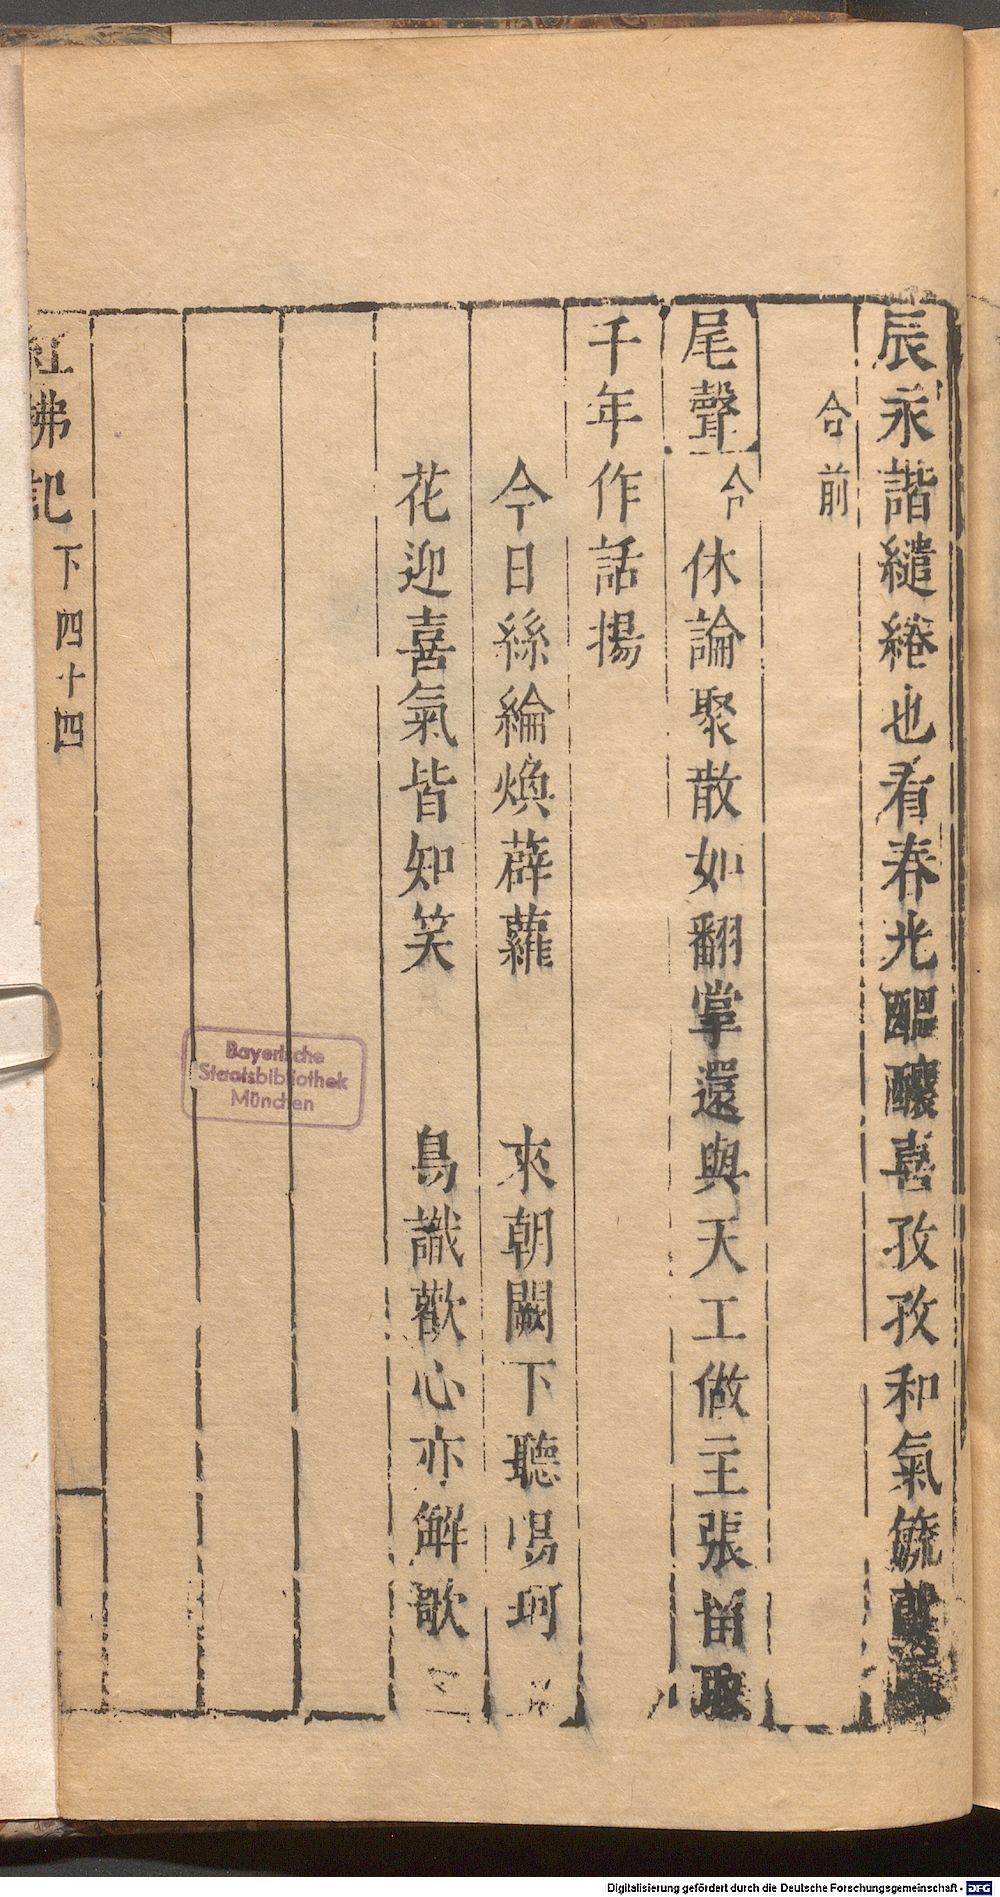 辰永諧繾綣也看春光醖釀喜孜孜和氣
合前
尾聲合休論聚散如翻掌還與天工做主張留取
千年作話揚
今日絲綸煥薜蘿 來朝闕下聽鳴珂
花迎喜氣皆知笑 鳥識歡心亦解歌
紅拂記 下四十四
Bayerische
Staatsbibliothek
München
Digitalisierung gefördert durch die Deutsche Forschungsgemeinschaft - DFG